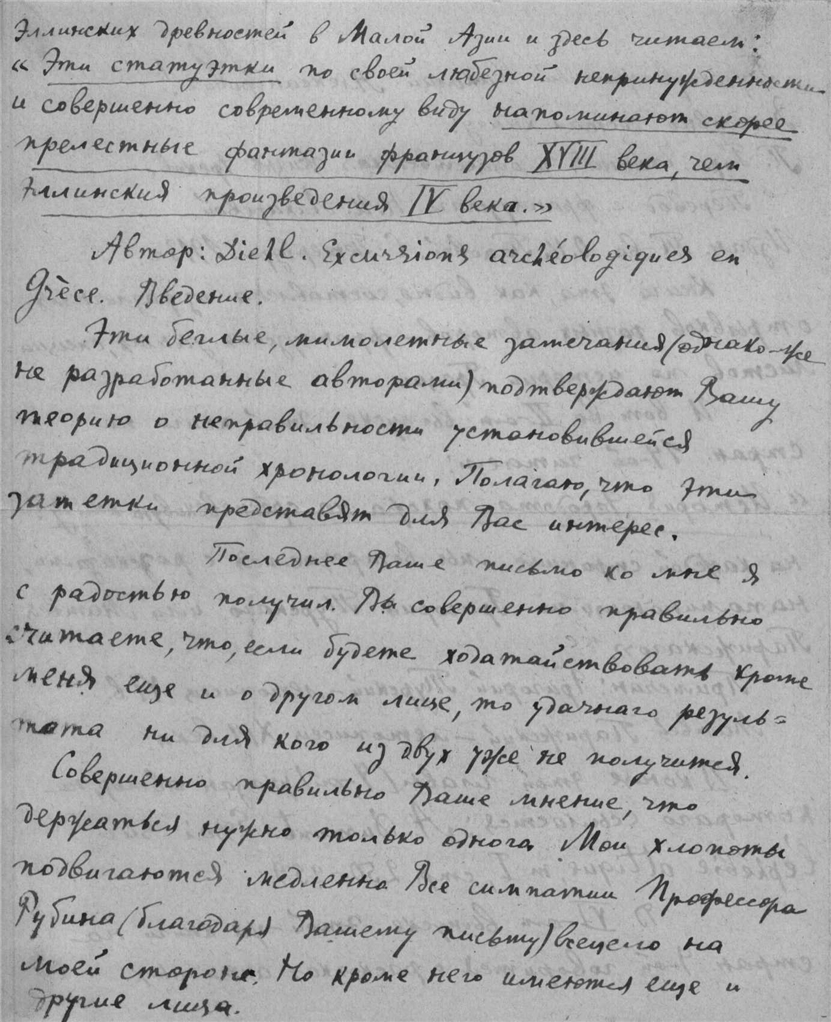 Эллинских древностей в Малой Азии и здесь читаем:
« Эти статуэтки по своей любезной непринужденности
и совершенно современному виду напоминают скорее
прелестные фантазии французов XVIII века, чем
Эллинския произведения IV века.»
Автор: Diehl. Excursions archéologiques en
Grèce. Введение.
Эти беглые, мимолетные замечания (однако-же
не разработанные авторами) подтверждают Вашу
теорию о неправильности установившейся
традиционной хронологии. Полагаю, что эти
заметки представят для Вас интерес.
Последнее Ваше письмо ко мне я
с радостью получил. Вы совершенно правильно
считаете, что, если будете ходатайствовать кроме
меня еще и о другом лице, то удачнаго резуль=
тата ни для кого из двух уже не получится.
Совершенно правильно Ваше мнение, что
держаться нужно только однога. Мои хлопоты
подвигаются медленно. Все симпатии Профессора
Рубина (благодаря Вашему письму) всецело на
моей стороне. Но кроме него имеются еще и
другие лица.